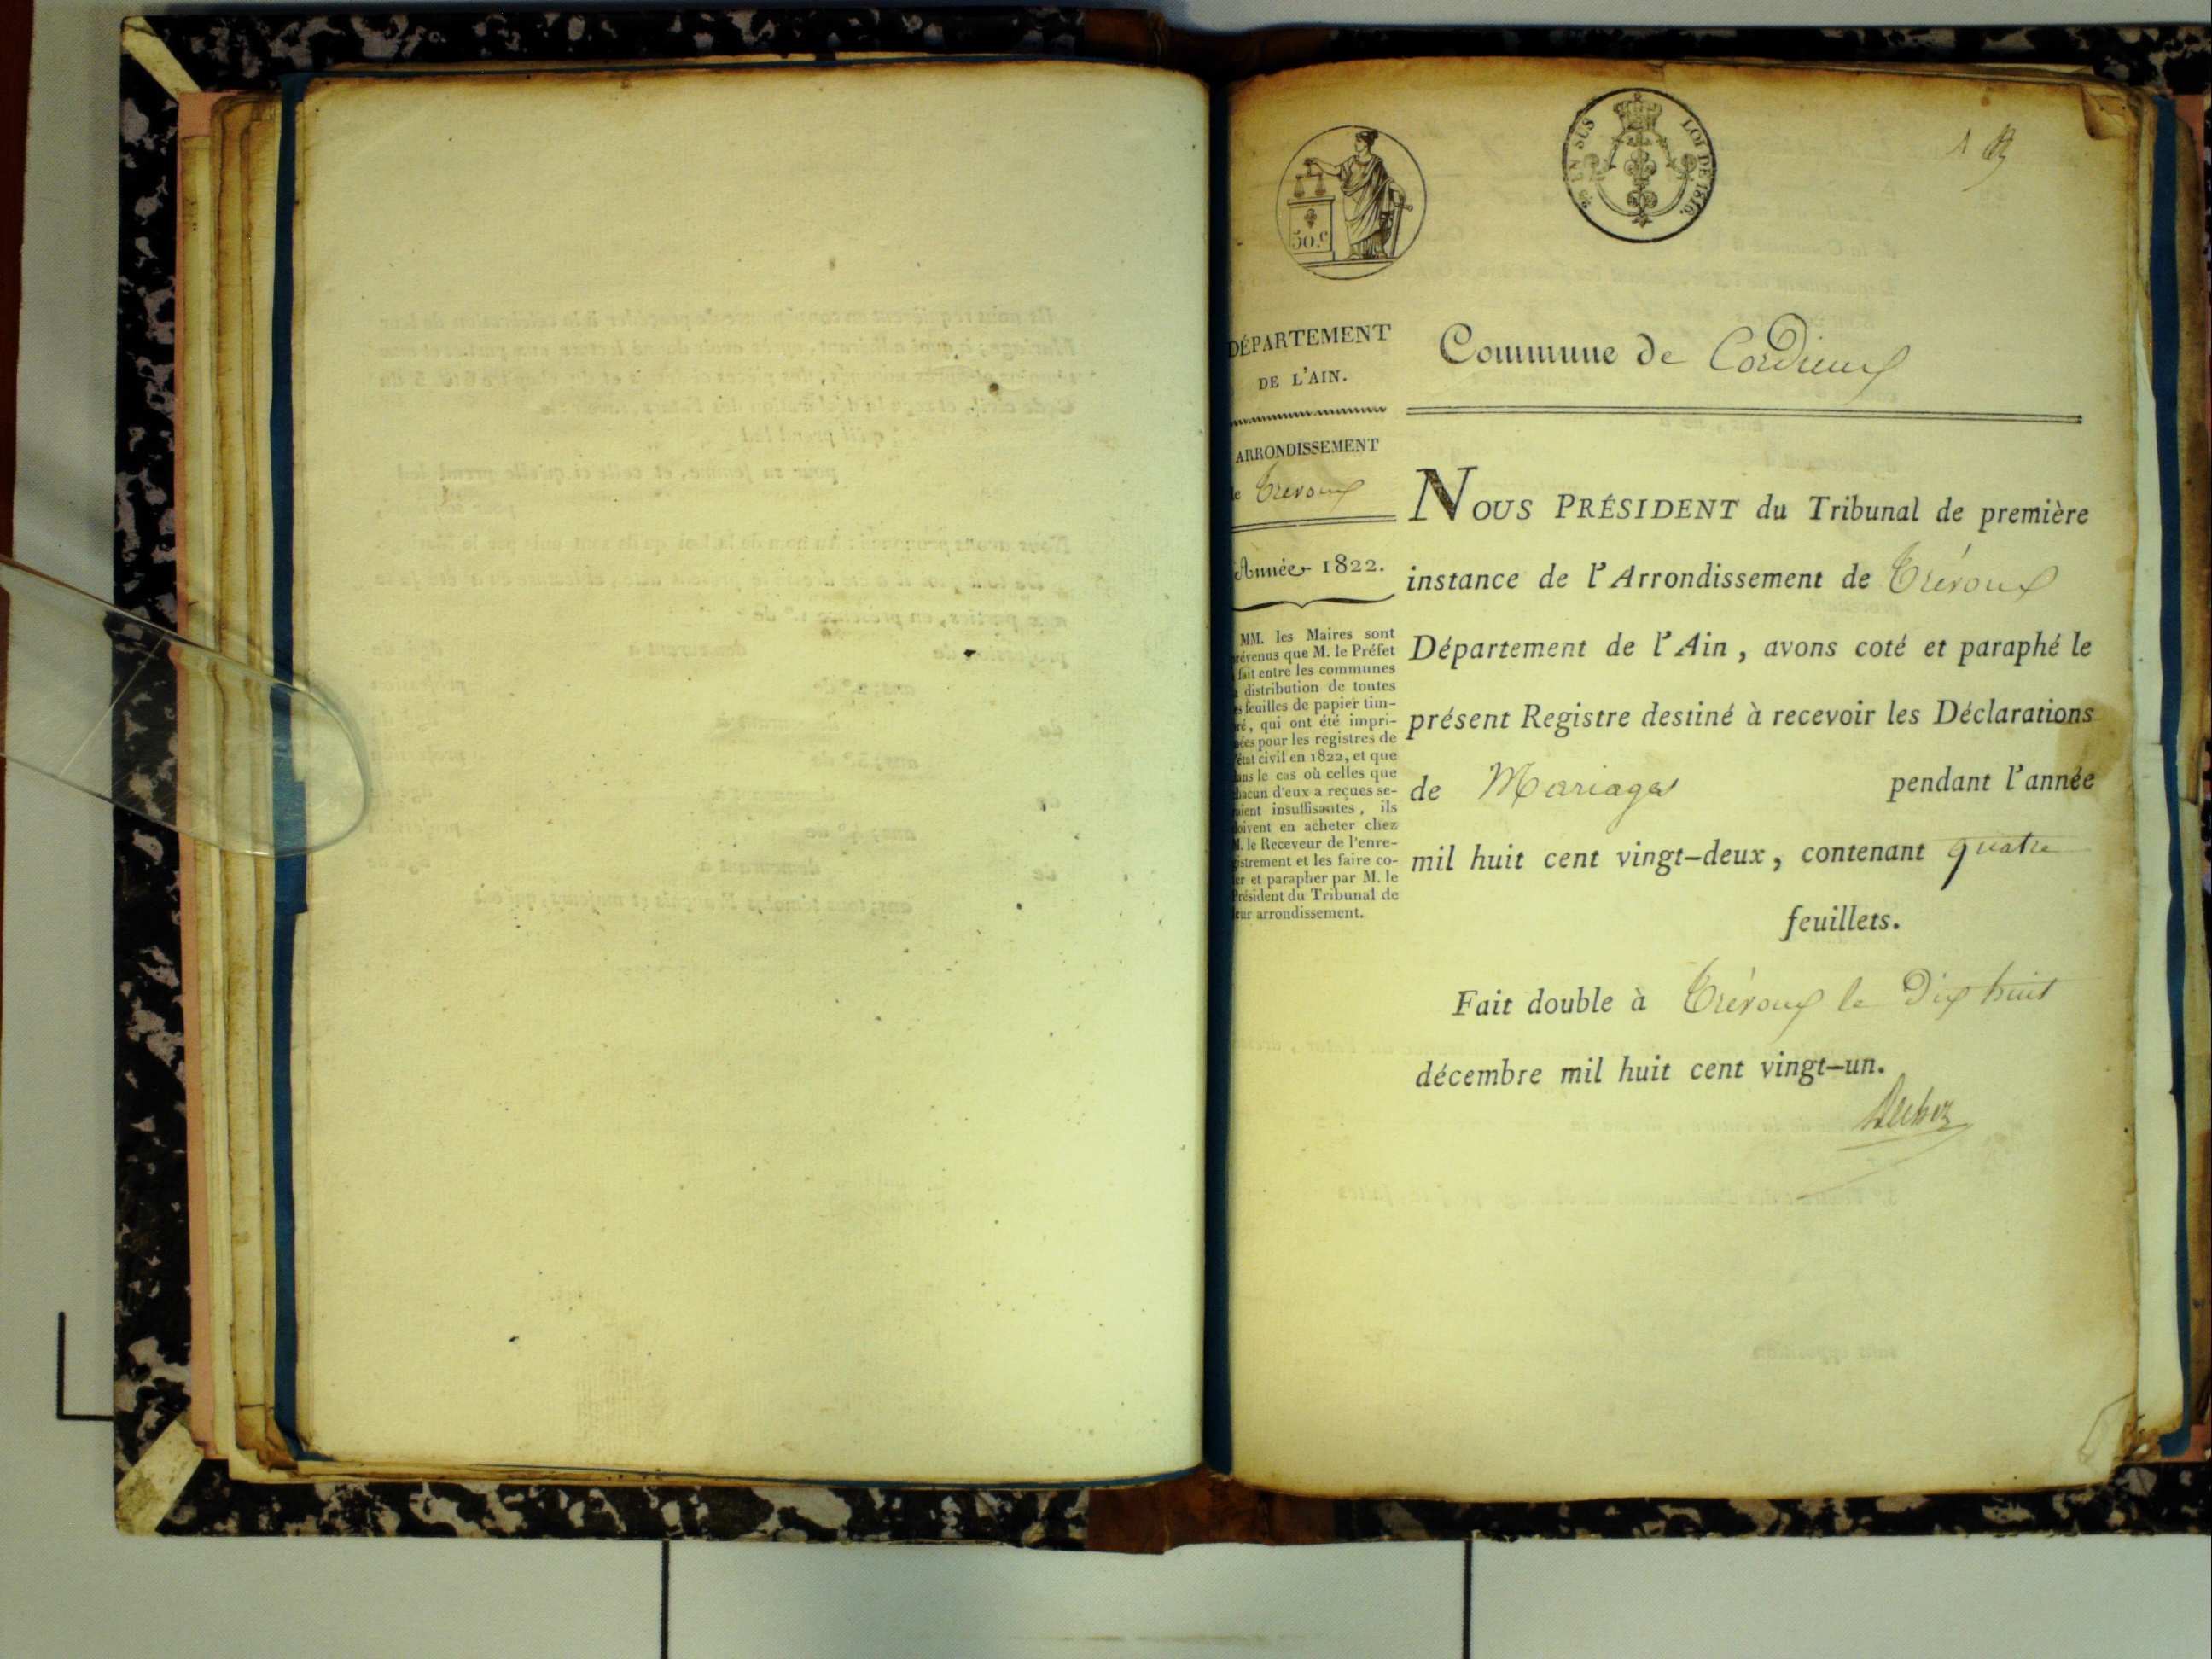 50.c
25 EN SUS LOI DE 1816.
1
DÉPARTEMENT
DE L'AIN.
ARRONDISSEMENT
de Trévoux
Année 1822.
MM. les Maires sont
prévenus que M. le Préfet
a fait entre les communes
la distribution de toutes
les feuilles de papier tim-
bré, qui ont été impri-
mées pour les registres de
l'état civil en 1822, et que
dans le cas où celles que
chacun d'eux a reçues se-
raient insuffisantes, ils
doivent en acheter chez
M. le Receveur de l'enre-
gistrement et les faire co-
ter et parapher par M. le
Président du Tribunal de
leur arrondissement.
Commune de Cordieux
NOUS PRÉSIDENT du Tribunal de première
instance de l'Arrondissement de Trévoux
Département de l'Ain, avons coté et paraphé le
présent Registre destiné à recevoir les Déclarations
de Mariages pendant l'année
mil huit cent vingt-deux, contenant quatre
feuillets.
Fait double à Trévoux le Dix huit
décembre mil huit cent vingt-un.